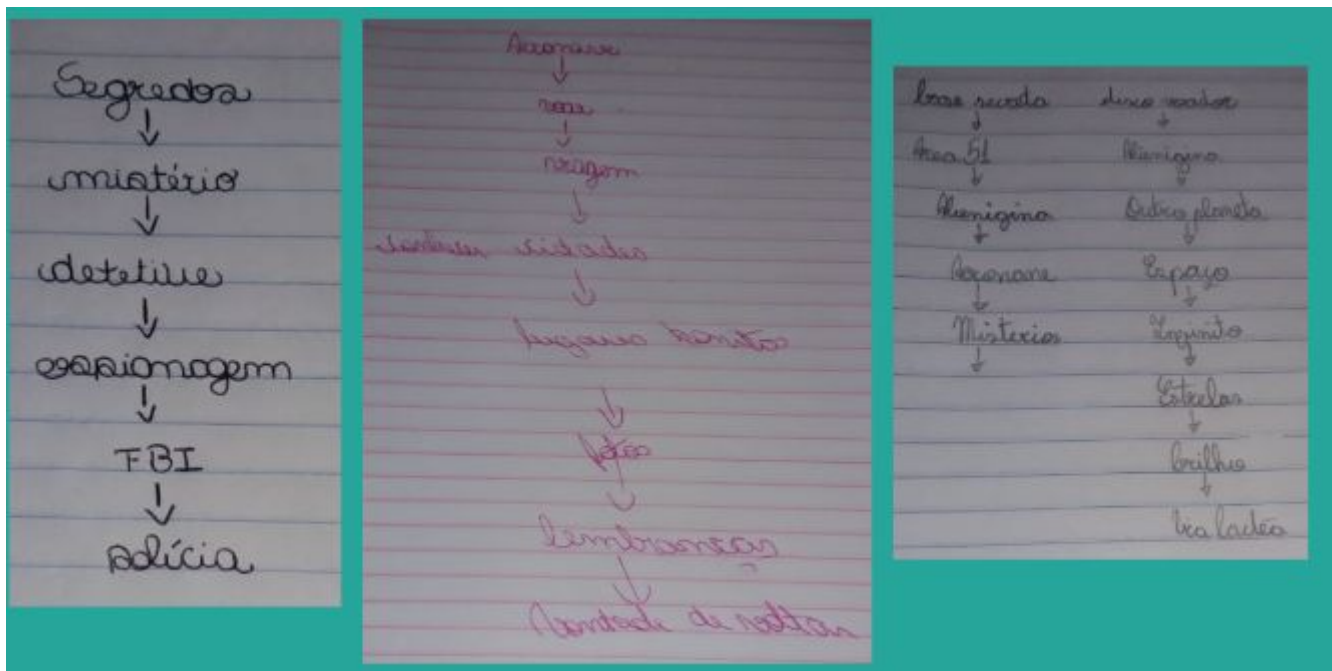 Segredos
mistério
detetive
espionagem
FBI
polícia
Aeronave
voar
viagem
conhecer cidades
lugares bonitos
fotos
lembranças
Vontade de voltar
base secreta
Área 51
Alienígina
Aeronave
Misterios
disco voador
Alienigina
Outro planeta
Espaço
Infinito
Estrelas
brilho
Via lactéa